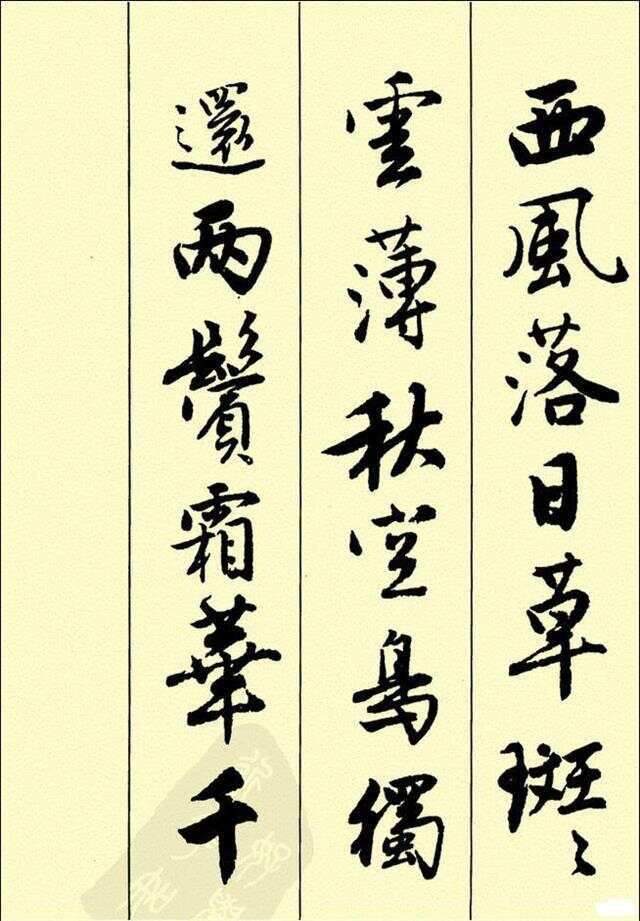 西風落日草斑〻
雲薄秋空鳥獨
還兩鬢霜華千